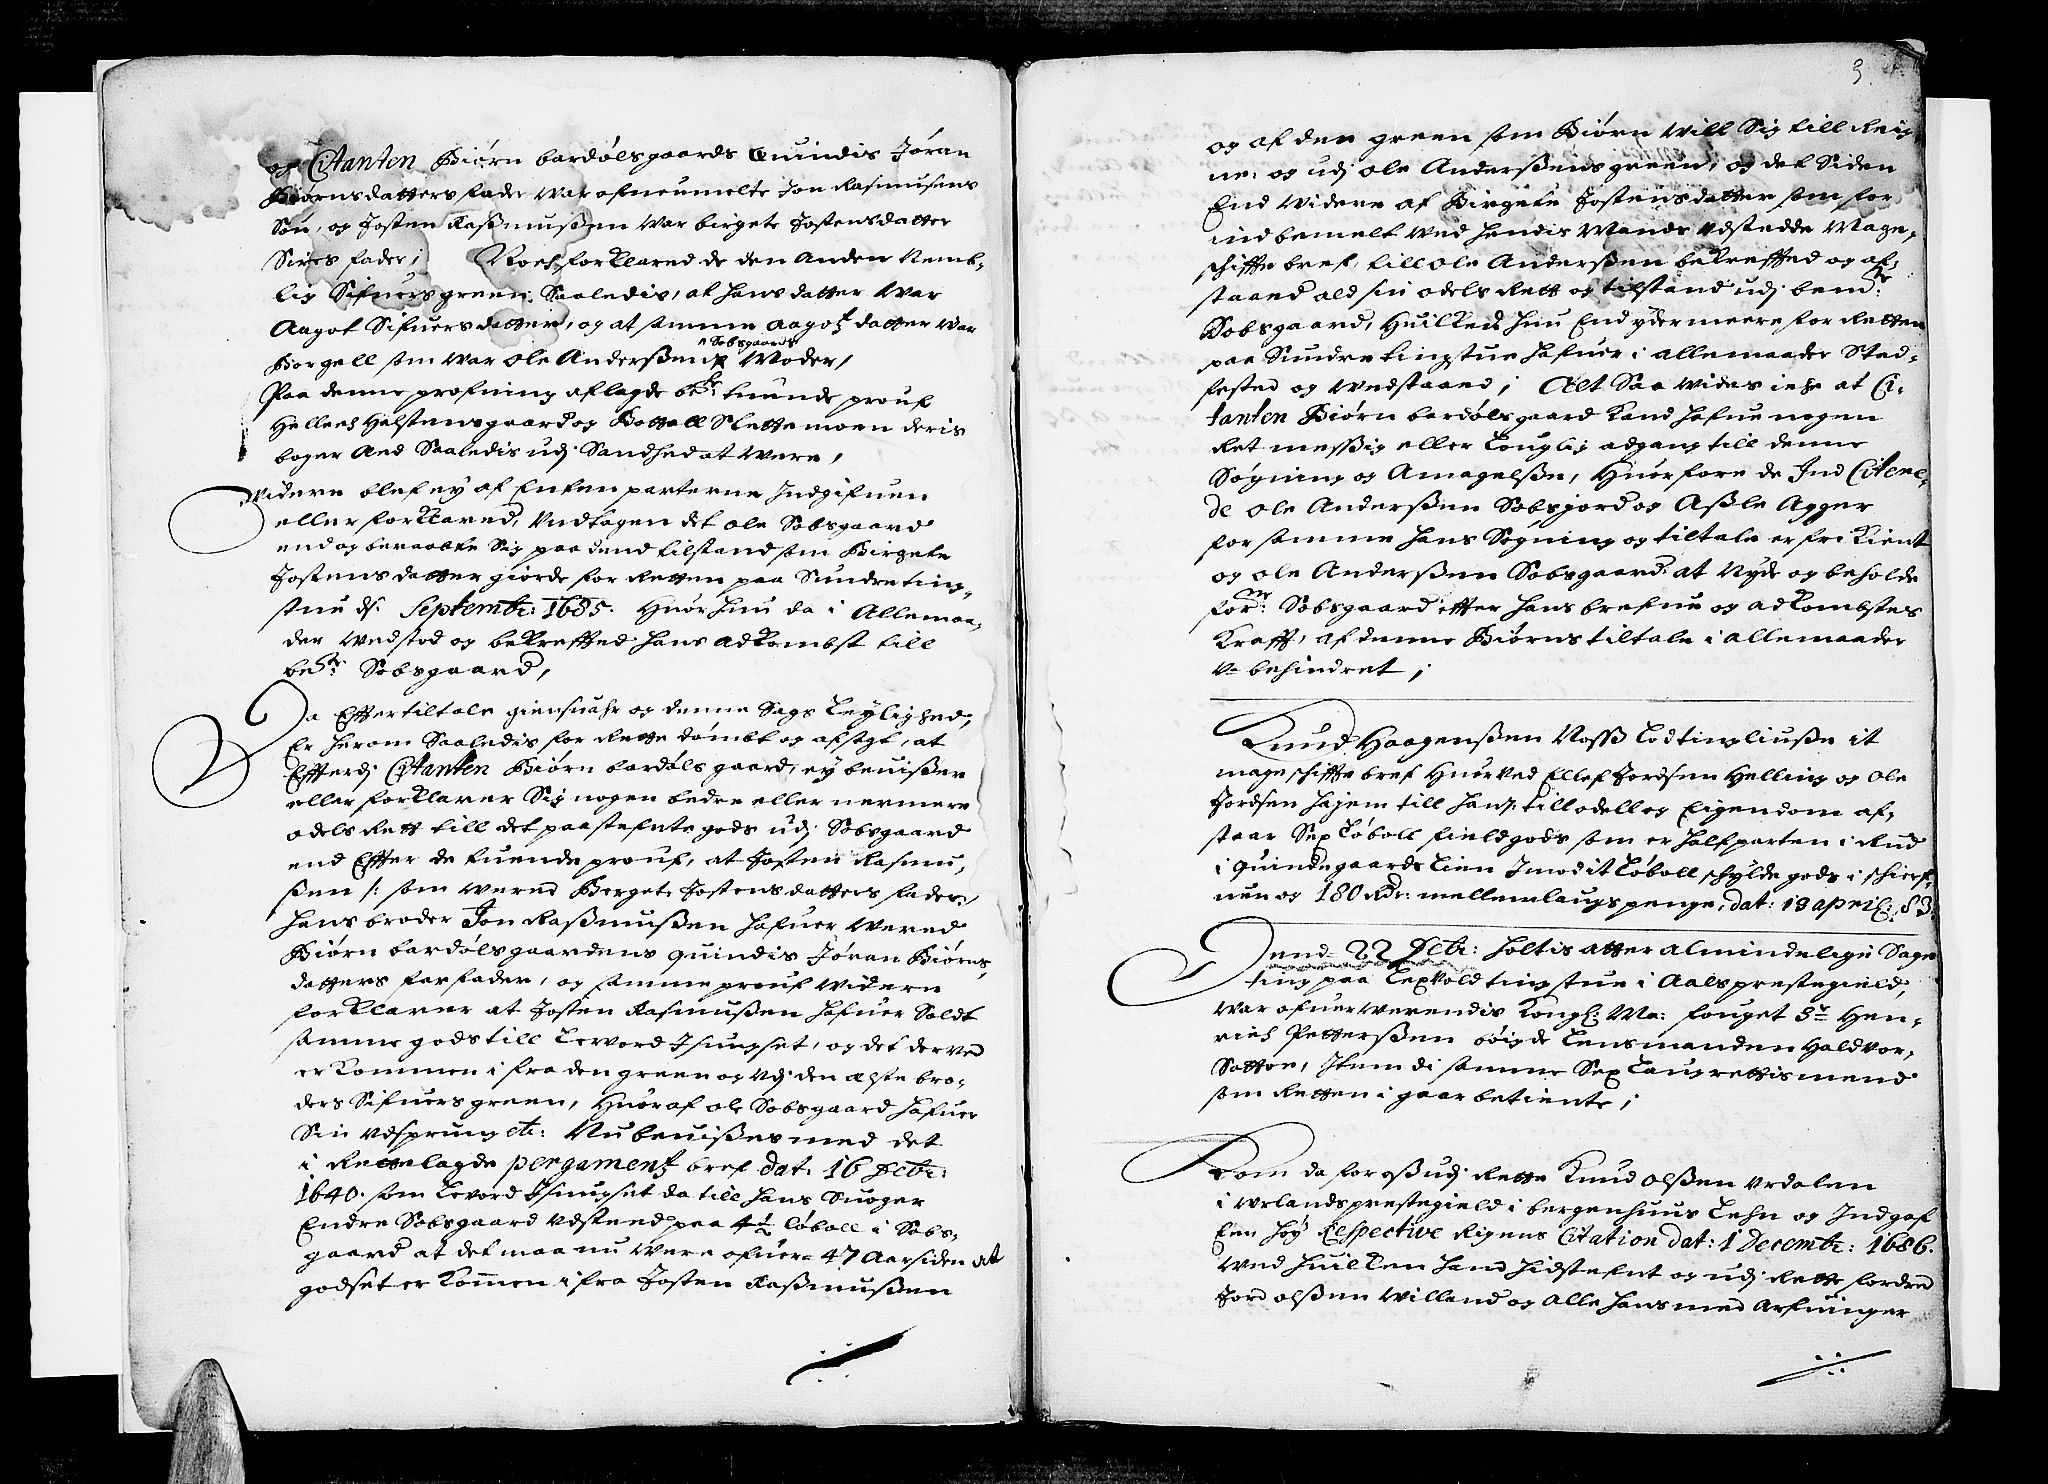 og Citanten Biørn bardølsgaards Quindis Jøran
Biørnsdatters fader war ofneumelte Jon Rasmusens
Søn, og Josten Rasmusßen war birgete Jostensdatter
fader; Noch forklared de den anden Nemb-
lig Sifuers green, Saaledis, at hans datter War
Aagot Sifuersdatter, og at samme aagotz datter war
Borgell som war ole Anderßens Sobsgaards Moder,
Paa denne profning aflagde bete: tuende prouf
Hellech Halstensgaard og Bottoll Slettemoen deris
boger Aed Saaledis udj Sandhed at Were,
Widere blef ey af Enten parterne Indgifuen
eller forklared, Undtagen det ole Sobsgaard
end og beraabte Sig paa dend tilstand som Birgete
Jostensdatter giorde for Retten paa Sundre ting-
stue d: Septembr: 1685. Huor hun da i Allemaa-
der wedstod og bekreffted hans adkombst till
bete: Sobsgaard,
Da Effter tiltale giensuahr og denne Sags Leylighed,
Er herom Saaledis for Rette dømbt og afsagt, at
Efterdj Citanten Biørn bardøls gaard, ey beuißer
eller forklarer Sig nogen bedre eller nermere
odels Rett till det paastefnte gods udj Sobsgaard
end Effter de tuende prouf, at Josten Rasmu-
ßen /: som wered Bergete Jostensdatters fader,
hans broder Jon Rasmusßen hafuer Wered
Biørn bardølsgaardens quindis Jøran Biørns-
datters farfader, og samme prouf widere
forklarer at Josten Rasmusßen hafuer Soldt
samme gods till Levord Isungset, og det derved
er kommen i fra den green og udj den elste bro-
ders Sifuers green, Huoraf ole Sobsgaard hafuer
Sin udsprung etc: Nu beuißes med det
i Rettelagde pergamentz bref dat: 16 Octbr:
1640. som Levord Isungset da till hans Suoger
Endre Sobsgaard udsted paa 4½ løboll i Sobs-
gaard at det maa nu were ofuer 47 Aar siden at
godset er kommen i fra Josten Rasmusßen
3
og af den green som Biørn will Sig till Reig-
ne: og udj ole Anderßens green, og det Siden
End widere af Birgete Jostensdatter som for
indbemelt med hendis Mands udstedde Mage-
schiffte bref till ole Anderßen bekreffted og af-
staaed ald sin odels Rett og tilstand udj bemte:
Sobsgaard, Huilked hun End ydermeere for Retten
paa Sundre tingstue hafuer i allemaader Stad-
fested og wedstaaed; Alt Saa wides iche at Ci-
tanten Biørn bardølsgaard kand hafue nogen
Retmeßig eller Louglig adgang till denne
Søgning og Amagelße, Huorfore de Ind Citere-
de ole Anderßen Sobsgord og Aßle Agger
for samme hans Søgning og tiltale er fri kient
og ole Anderßen Sobsgaard at Nyde og beholde
forn: Sobsgaard efter hans brefue og adkombstes
Krafft, af denne Biørns tiltale i allemaader
u-behindret;
Knud Haagenßen Noss lod tingliuße it
mageschiffte bref Huorved Ellef Jordsen Helling og Ole
Jordsen hajem till hans till odell og Eigendom af-
staar Sex Løboll fieldgods som er halfparten i Rud
i Quindegaards Lien Imod it Løboll schylde gods i schierf-
uen og 180 Rdr: mellemlaugs penge, dat: 18 april: 83.
Dend 22 Febr: holtis atter almindelige Sage
ting paa Lexvold tingstue i Aals prestegield,
war ofuerwerendis Kongl: Ma: fouget Sr Hen-
rich Petterßen øøigde Lensmanden Haldvor
Sotton, Item di samme Sex Laugrettismend
som Retten i gaar betiente;
Kom da for oß udj Rette Knud olßen urdalen
i urlands prestegield i bergenhuus Lehn og Indgaf
Een høy Respective Rigens Citation dat: 1 Decembr: 1686.
Med huilken hand hidstefnt og udj Rette fordred
Jord olßen Willand og Alle hans med Arfuinger